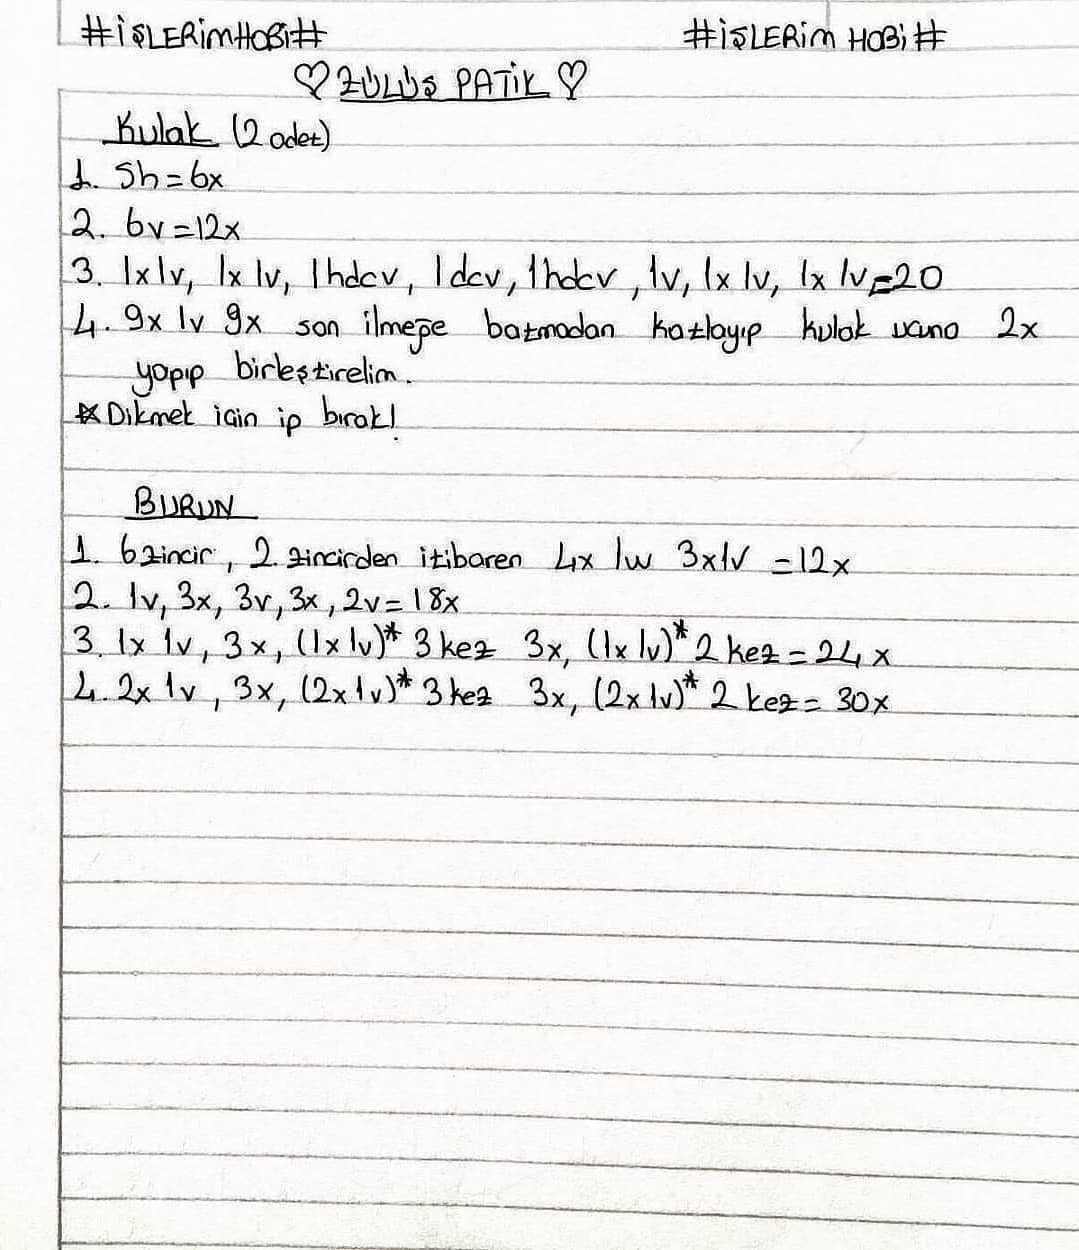 #İŞLERİMHOBİ# #İŞLERİM HOBİ#
♡ ZÜLÜŞ PATİK ♡
Kulak (2 adet)
1. Sh=6x
2. 6v=12x
3. 1x1v, 1x 1v, 1hdcv, 1dcv, 1hdcv, 1v, 1x 1v, 1x 1v=20
4. 9x 1v 9x son ilmeğe batmadan katlayıp kulak ucuna 2x
yapıp birleştirelim.
* Dikmek için ip bırak!
BURUN
1. 6zincir, 2. zincirden itibaren 4x 1w 3x1v =12x
2. 1v, 3x, 3v, 3x, 2v=18x
3. 1x 1v, 3x, (1x 1v)* 3 kez 3x, (1x 1v)* 2 kez = 24x
4. 2x 1v, 3x, (2x 1v)* 3 kez 3x, (2x 1v)* 2 kez = 30x